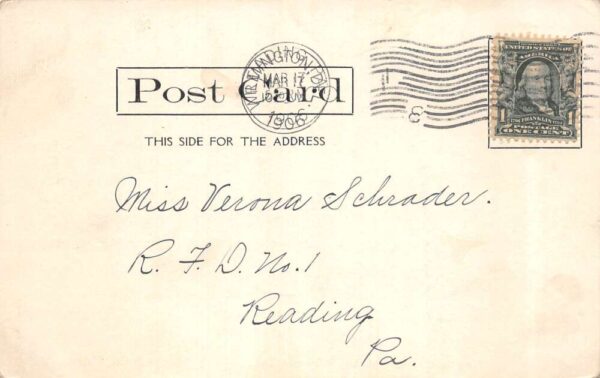 MAR 17
1906
UNITED STATES OF AMERICA
FRANKLIN
1 POSTAGE 1
ONE CENT
Post Card
THIS SIDE FOR THE ADDRESS
Miss Verona Schrader.
R. F. D. No. 1
Reading
Pa.